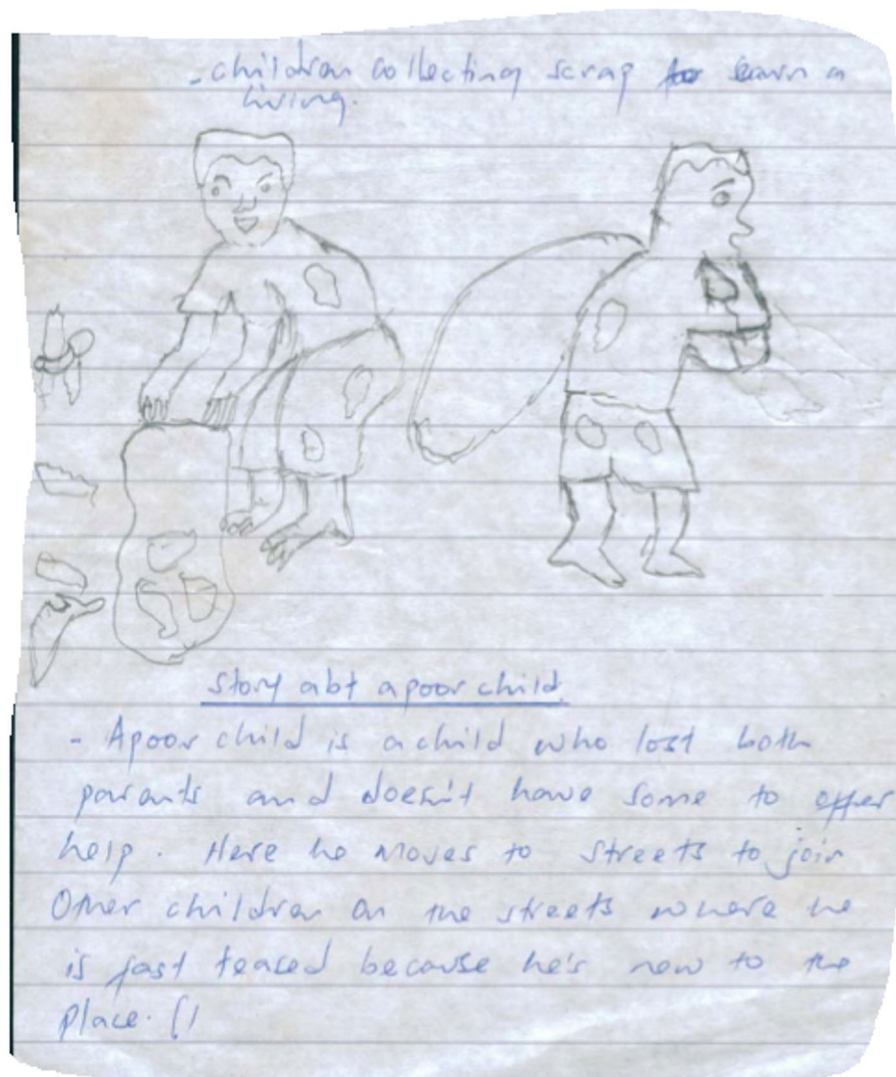 - children collecting scrap to earn a
living.
Story abt a poor child
- A poor child is a child who lost both
parents and doesn't have some to offer
help. Here he moves to streets to join
Other children on the streets where he
is fast teased because he's new to the
place.